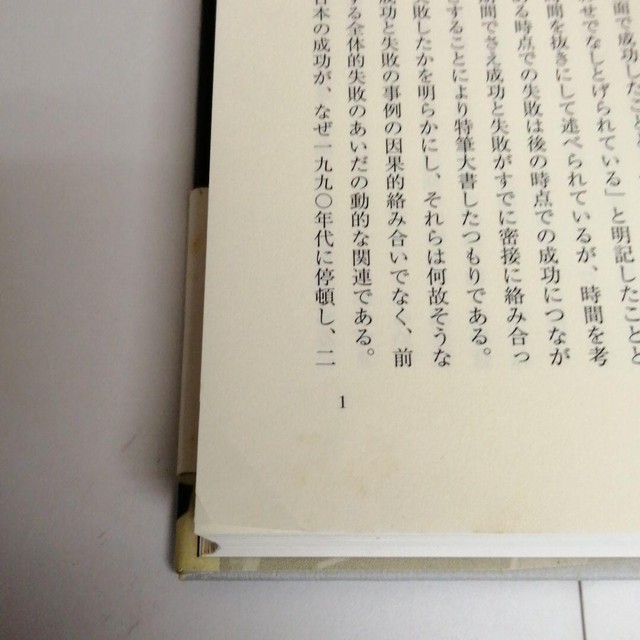 面で成功したこと
せでなしとげられている」と明記したことと
間を抜きにして述べられているが、時間を考
る時点での失敗は後の時点での成功につなが
期間でさえ成功と失敗がすでに密接に絡み合っ
とすることにより特筆大書したつもりである。
失敗したかを明らかにし、それらは何故そうな
成功と失敗の事例の因果的絡み合いでなく、前
する全体的失敗のあいだの動的な関連である。
日本の成功が、なぜ一九九〇年代に停頓し、二
1